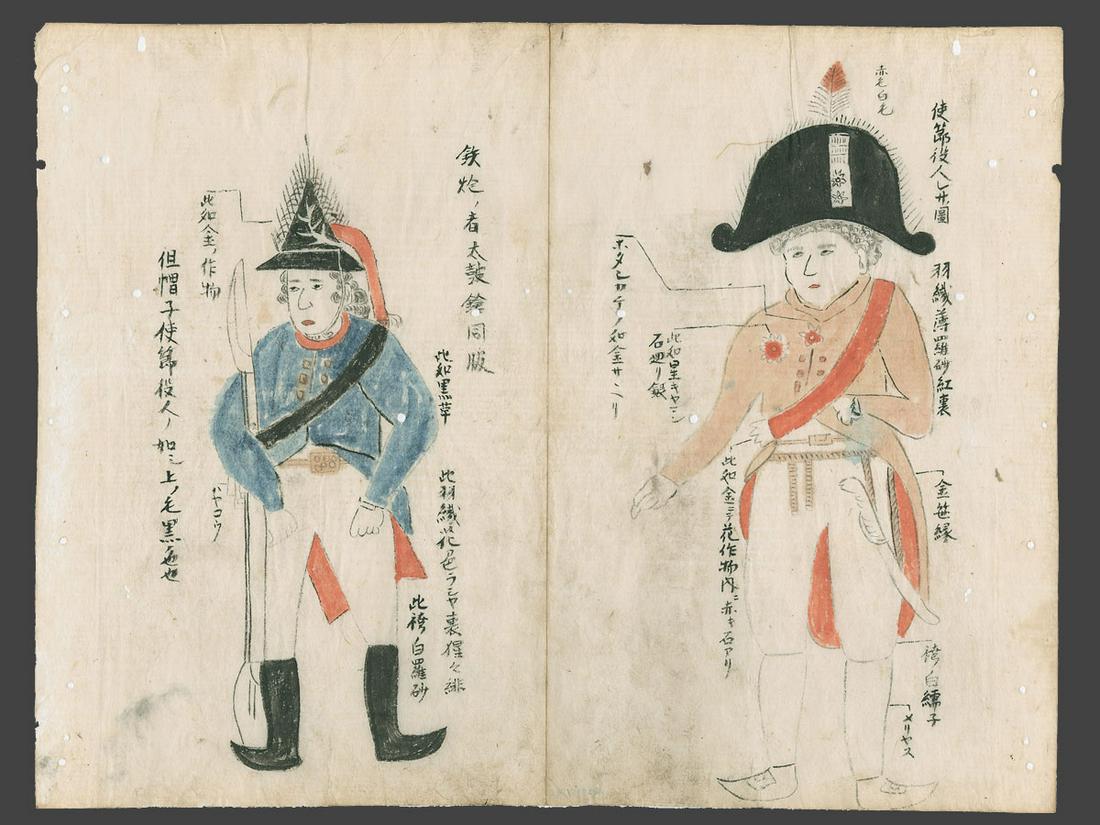 使節役人レサノ圖
赤毛白毛
羽織薄羅砂紅裏
ホタンカケノ如金
此如星
石廻り銀
此如金ニテ花作物内ニ赤キ石アリ
金笹縁
袴ノ白繻子
メリヤス
鉄炮ノ者太鼓鎗同服
此如黒革
此羽織ハ花色ラシヤ裏猩々緋
此袴白羅砂
此如金ノ作物
ハヤコウ
但帽子使節役人ノ如シ上ノ毛黒色也